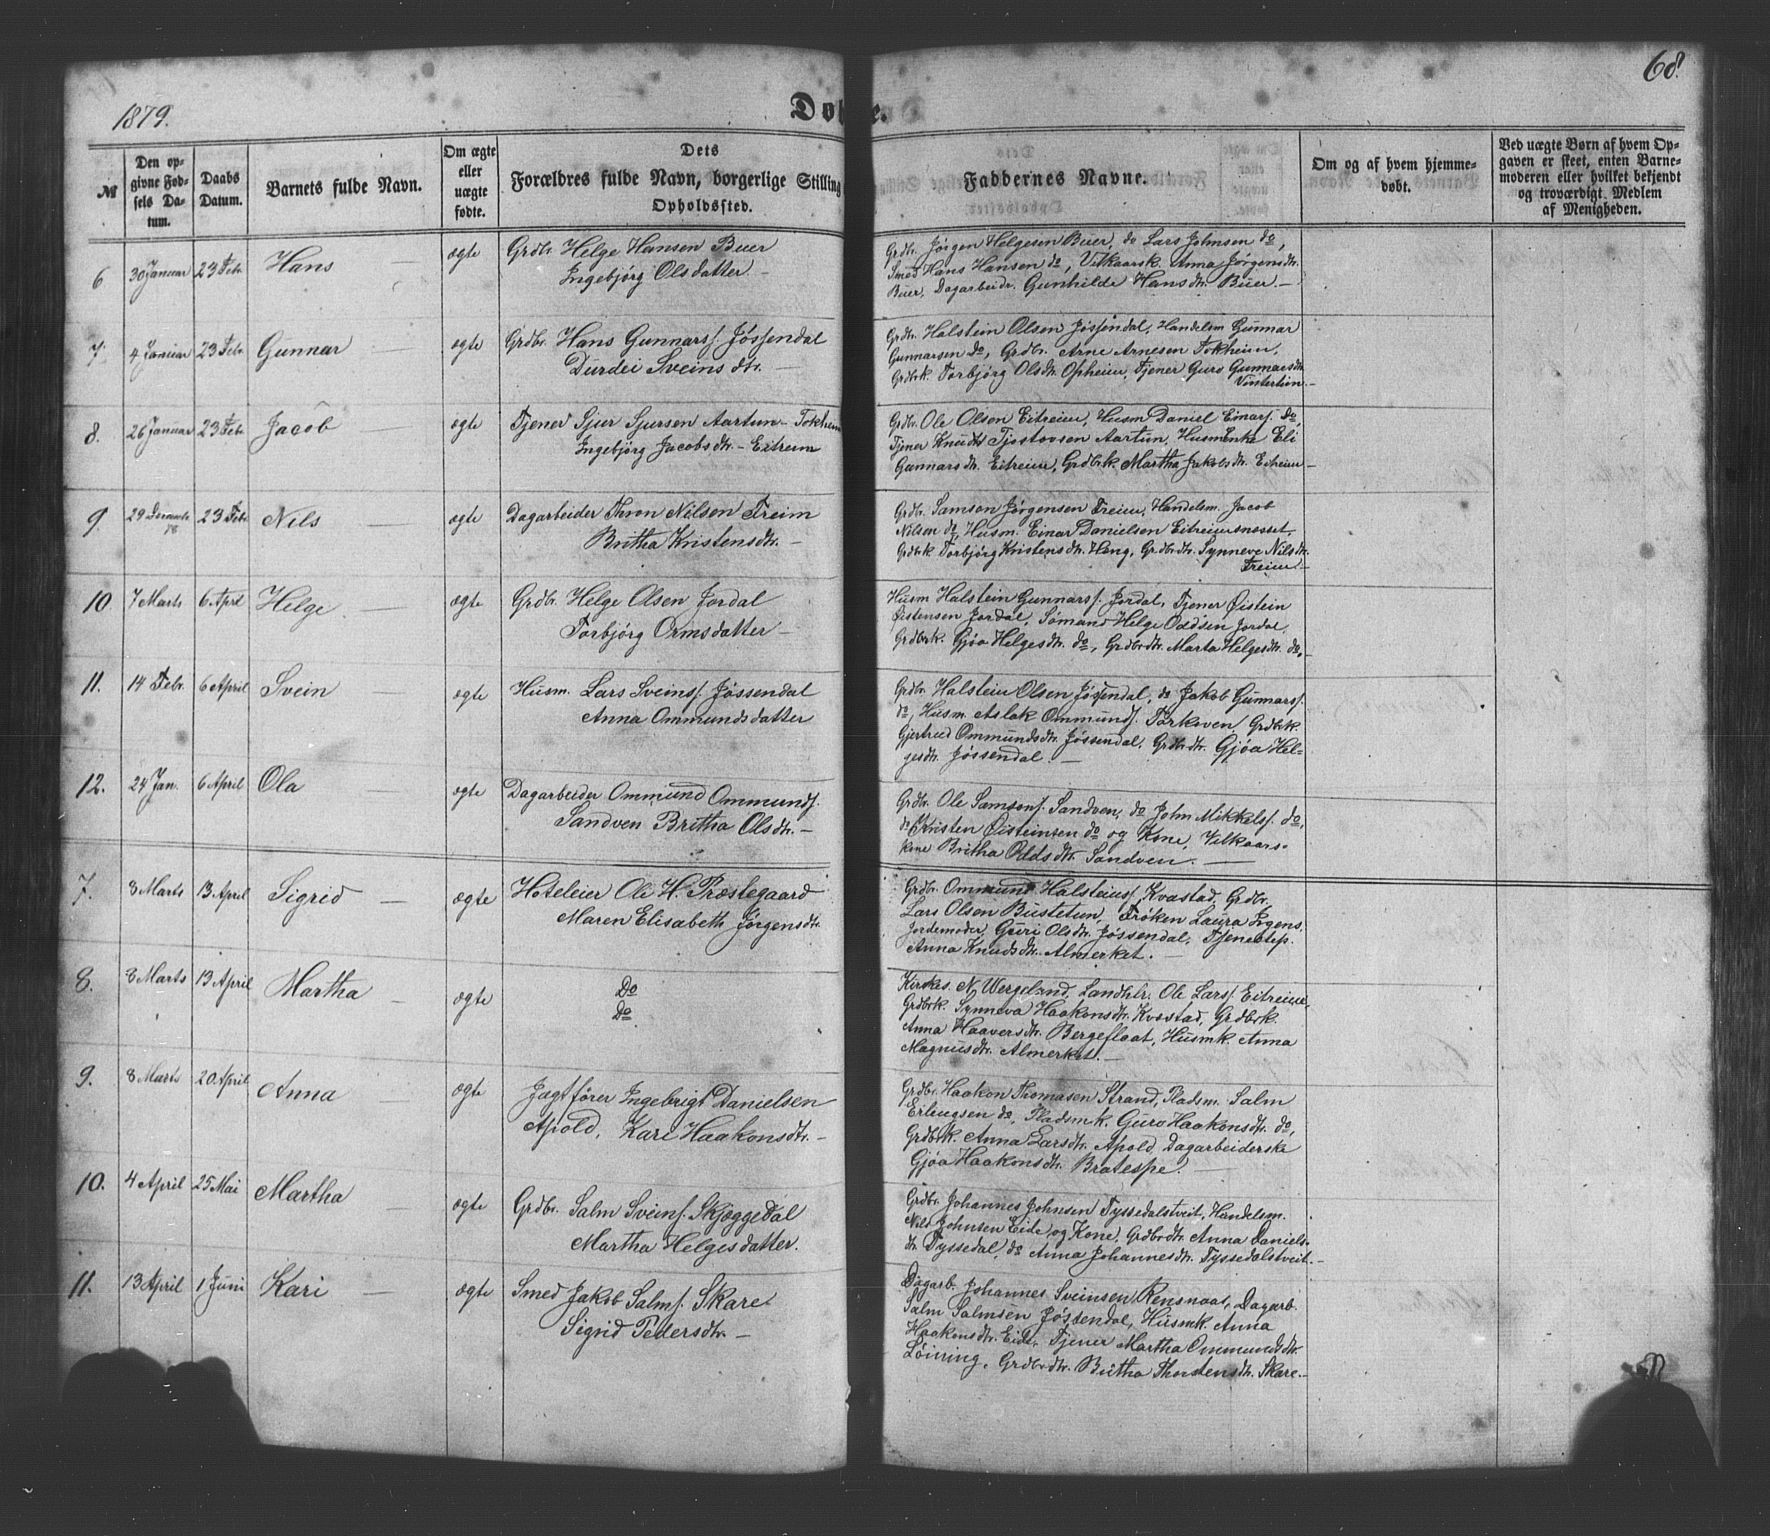 1879.
Døbte.
68.
№
Den opgivne Fødsels Datum.
Daabs Datum.
Barnets fulde Navn.
Om ægte eller uægte fødte.
Dets Forældres fulde Navn, borgerlige Stilling Opholdssted.
Faddernes Navne.
Om og af hvem hjemmedøbt.
Ved uægte Børn af hvem Opgaven er skeet, enten Barnemoderen eller hvilket bekjendt og troværdigt Medlem af Menigheden.
6 30 Januar 23 Febr. Hans ægte
Grdbr. Helge Hansen Buer
Ingebjørg Olsdatter –
Grdbr. Jørgen Helgesen Buer, do Lars Johnsen do,
Smed Hans Hansen do, Vilkaarsk. Anna Jørgensdtr.
Buer, Dagarbeidr. Gunhilde Hansdtr. Buer. –
7 4 Januar 23 Febr. Gunnar ægte
Grdbr. Hans Gunnarss. Jøssendal
Durdei Sveinsdtr. –
Grdbr. Halstein Olsen Jøssendal, Handelsm Gunnar
Gunnarsen do, Grdbr. Arne Arnesen Tokheim,
Grdbrk. Torbjørg Olsdtr. Opheim, Tjener Guro Gunnarsdtr.
Vintertun. –
8. 26 Januar 23 Febr. Jacob ægte
Tjener Sjur Sjursen Aartun – Tokheim
Ingebjørg Jacobsdtr. – Eitreim
Grdbr. Ole Olsen Eitreim, Husm Daniel Einars. do,
Tjener Knudt Tjostovsen Aartun, Husmenke Eli
Gunnarsdtr. Eitreim, Grdbrk. Martha Jakobsdtr. Eitreim –
9. 29 Decembr 78 23 Febr Nils ægte
Dagarbeider Thron Nilsen Freim
Britha Kristensdtr. –
Grdbr. Samson Jørgensen Freim, Handelsm. Jacob
Nilsen do, Husm. Einar Danielsen Eitreimsnesset,
Grdbrk Torbjørg Kristensdtr. Haug, Grdbrdtr. Synneve Nilsdtr.
Freim –
10 7 Marts 6 April Helge ægte
Grdbr. Helge Olsen Jordal
Torbjørg Ormsdatter –
Husm Halstein Gunnarss. Jordal, Tjener Øistein
Øistensen Jordal, Sømand Helge Oddsen Jordal,
Grdbrk. Gjøa Helgesdtr. do, Grdbrdtr. Marta Helgesdtr. do.
11. 14 Febr. 6 April Svein ægte
Husm. Lars Sveinss. Jøssendal
Anna Ommundsdatter
Grdbr. Halstein Olsen Jøssendal, do Jakob Gunnarss.
do, Husm Aslak Ommunds. Grdbrk.
Gjertrud Ommundsdtr. Jøssendal, Grdbrdtr. Gjøa Hel-
gesdtr. Jøssendal. –
12. 24 Jan. 6 April Ola ægte
Dagarbeider Ommund Ommunds.
Sandven Britha Olsdtr. –
Grdbr. Ole Samsons. Sandven, do John Mikkels. do,
do Kristen Øisteinsen do og Kone, Vilkaars-
kone Britha Oddsdtr. Sandven. –
7. 8 Marts 13 April Sigrid – ægte
Hoteleier Ole H. Præstegaard
Maren Elisabeth Jørgensdtr.
Grdbr. Ommund Halsteins. Kvæstad, Grdbr.
Lars Olsen Bustetun, Frøken Laura Irgens,
Jordemoder Guri Olsdtr. Jøssendal, Tjenestep.
Anna Knudsdtr. Almerket. –
8. 8 Marts 13 April Martha – ægte
Do
Do
Kirkes. N. Wergeland, Landhlr. Ole Larss. Eitreim,
Grdbrk. Synneva Haakonsdtr. Kvæstad, Grdbrk.
Anna Haaversdtr. Bergeflaat, Husmk. Anna
Magnusdtr. Almerket. –
9. 8 Marts 20 April Anna ægte
Jagtfører Ingebrigt Danielsen
Apold, Kari Haakonsdtr. –
Grdbr. Haakon Thomasen Strand, Pladsm. Salm
Erlingsen do, Pladsmk. Guro Haakonsdtr. do,
Grdbrk. Anna Larsdtr. Apold, Dagarbeiderske
Gjøa Haakonsdtr. Bratespe. –
10. 4 April 25 Mai Martha ægte
Grdbr. Salm Sveins. Skjæggedal
Martha Helgesdatter.
Grdbr. Johannes Johnsen Tyssedalstveit, Handelsm.
Nils Johnsen Eide og Kone, Grdbrdtr. Anna Daniels-
dtr. Tyssedal, do Anna Johannesdtr. Tyssedalstveit. –
11. 13 April 1 Juni Kari – ægte
Smed Jakob Salms. Skare
Sigrid Pedersdtr. –
Dagarb. Johannes Sveinsen Rensnaat, Dagarb.
Salm Salmsen Jøssendal, Husmk. Anna
Haakonsdtr. Eide, Tjener Martha Ommundsdtr.
Løining, Grdbrdtr. Britha Thorstensdtr. Skare. –